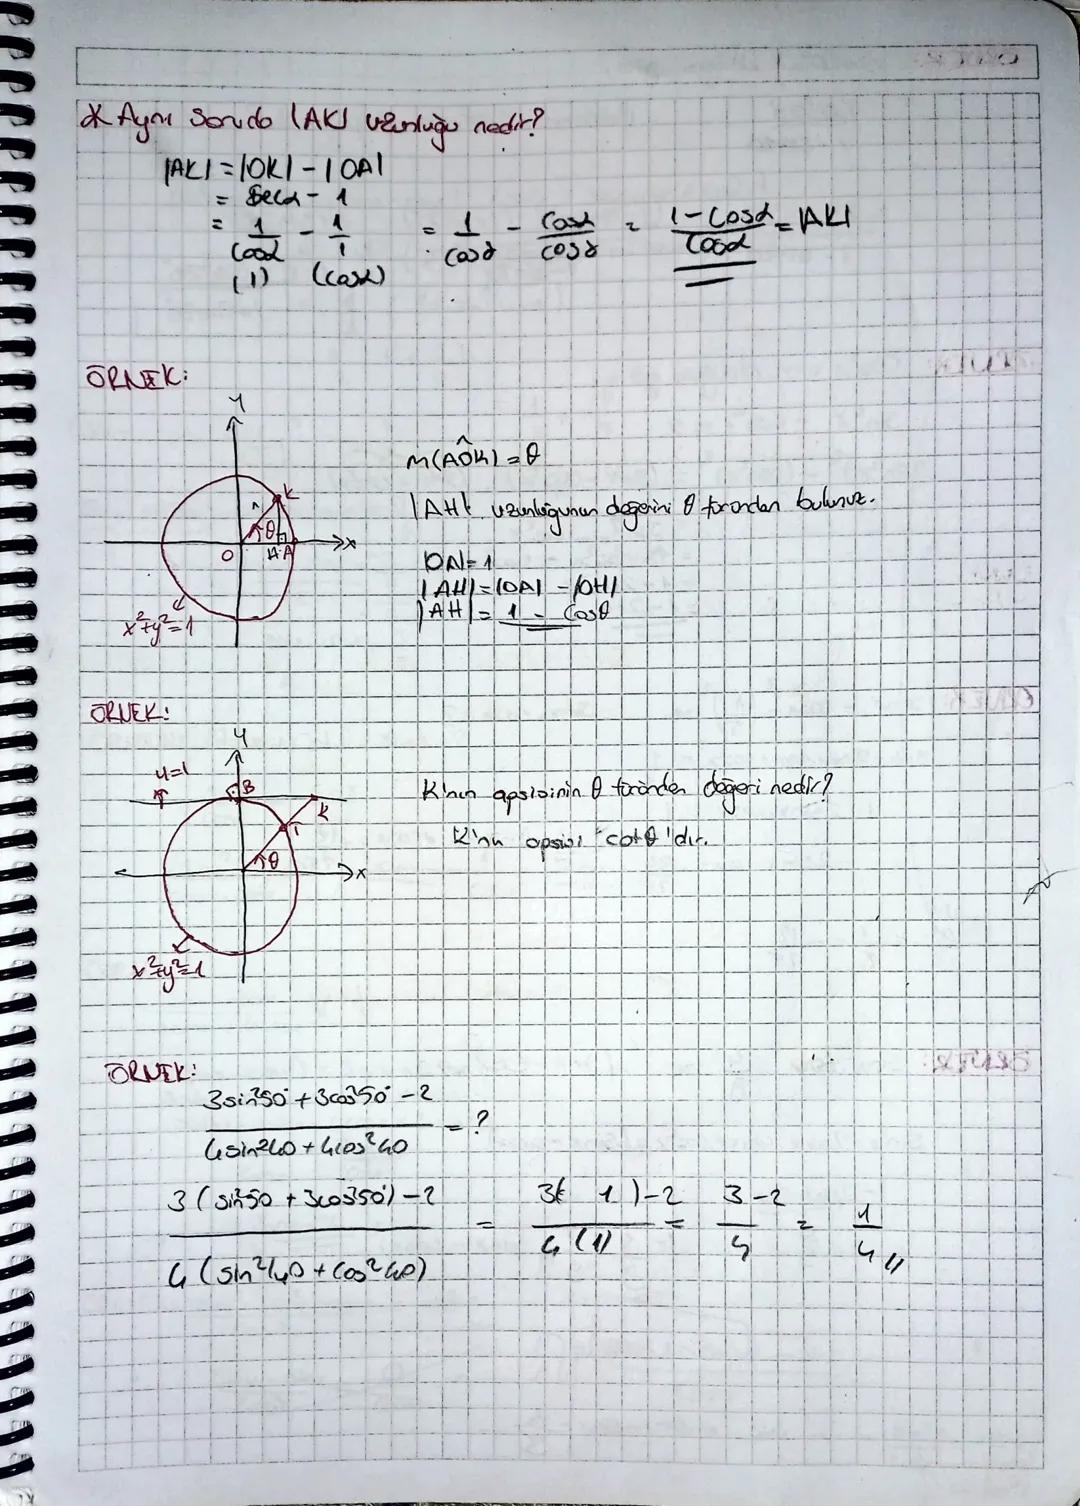 * Aynı Soruda |AK| uzunluğu nedir?
|AK| = |OK| - |OA|
= Secα - 1
= 1/cosα - 1/1 = 1/cosα - cosα/cosα = 1-cosα/cosα = |AK|
(1) (cosα)
ÖRNEK:
y
m(AÔK) = θ
K
1
|AH| uzunluğunun değerini θ türünden bulunuz.
θ
O H A x
|OA|= 1
|AH| = |OA| - |OH|
|AH| = 1 - Cosθ
x²+y²=1
ÖRNEK:
y
y=1
B
K'nın apsisinin θ türünden değeri nedir?
K
T
K'nın apsisi "cotθ"dır.
θ
x
x²+y²=1
ÖRNEK:
3sin²50° + 3cos²50° - 2 / 4sin²40 + 4cos²40 = ?
3(sin²50 + 3cos²50°) - 2 / 4(sin²40 + cos²40) = 3( 1 ) - 2 / 4(1) = 3-2 / 4 = 1/4 //